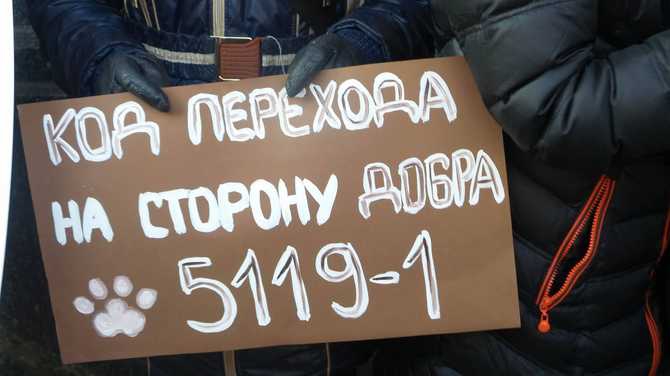 КОД ПЕРЕХОДА
НА СТОРОНУ ДОБРА
5119-1